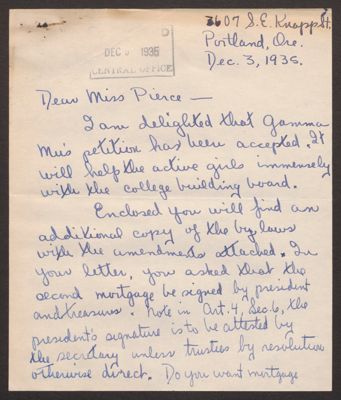 3607 S.E. Knapp St.
Portland, Ore.
Dec. 3, 1935.
D
DEC 5 1935
CENTRAL OFFICE
Dear Miss Pierce—
I am delighted that Gamma
Mu's petition has been accepted. It
will help the active girls immensely
with the college building board.
Enclosed you will find an
additional copy of the by laws
with the amendments attached. In
your letter, you asked that the
second mortgage be signed by president
and treasurer. Note in Art. 4, Sec. 6, the
president's signature is to be attested by
the secretary unless trustees by resolution
otherwise direct. Do you want mortgage